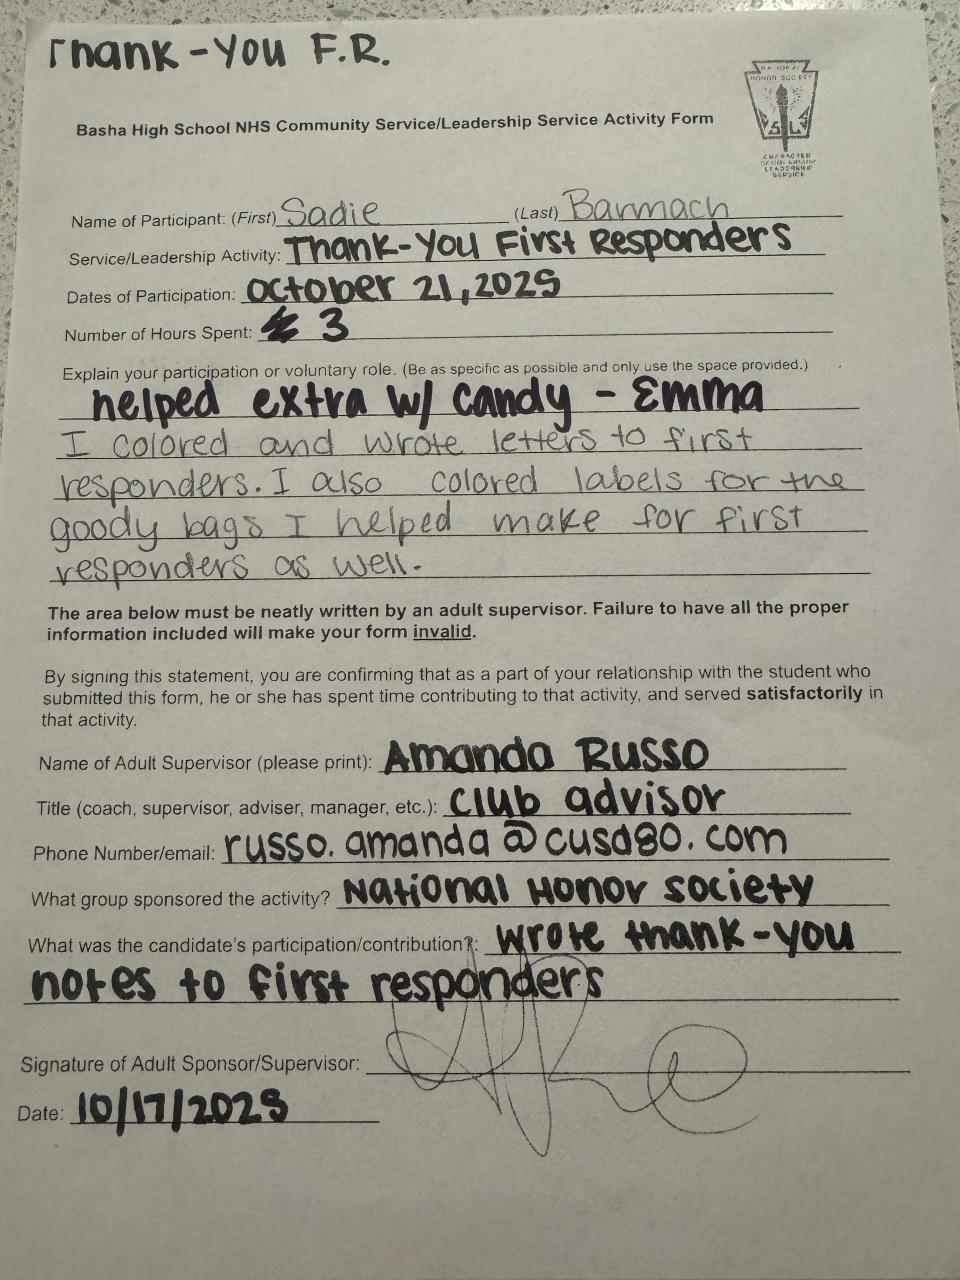 Thank-You F.R.
NATIONAL
HONOR SOCIETY
S L
CHARACTER
SCHOLARSHIP
LEADERSHIP
SERVICE
Basha High School NHS Community Service/Leadership Service Activity Form
Name of Participant: (First) Sadie (Last) Barmach
Service/Leadership Activity: Thank-You First Responders
Dates of Participation: October 21, 2025
Number of Hours Spent: 3
Explain your participation or voluntary role. (Be as specific as possible and only use the space provided.)
helped extra w/ candy - Emma
I colored and wrote letters to first
responders. I also colored labels for the
goody bags I helped make for first
responders as well.
The area below must be neatly written by an adult supervisor. Failure to have all the proper
information included will make your form invalid.
By signing this statement, you are confirming that as a part of your relationship with the student who
submitted this form, he or she has spent time contributing to that activity, and served satisfactorily in
that activity.
Name of Adult Supervisor (please print): Amanda Russo
Title (coach, supervisor, adviser, manager, etc.): Club advisor
Phone Number/email: russo.amanda@cusd80.com
What group sponsored the activity? National Honor Society
What was the candidate's participation/contribution?: Wrote thank-you
notes to first responders
Signature of Adult Sponsor/Supervisor:
Date: 10/17/2025